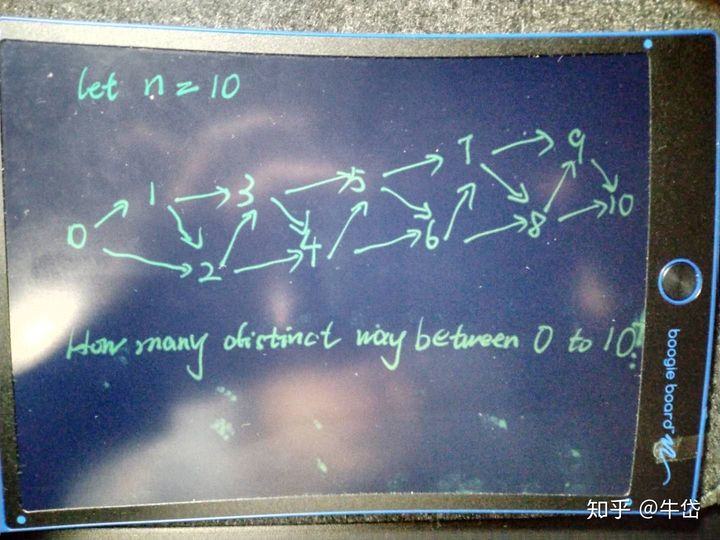 let n = 10
1 3 5 7 9
0 2 4 6 8 10
How many distinct way between 0 to 10?
boogie board
知乎 @牛岱